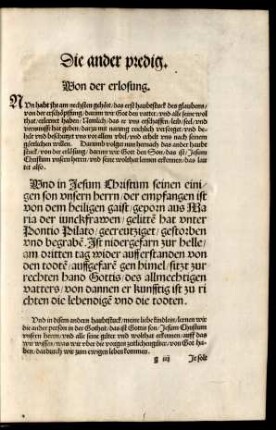 Die ander predig.
Von der erlösung.
NVn habt jhr am nechsten gehört/ das erst haubtstuck des glaubens/
von der erschöpffung/ darinn wir Got den vatter/ vnd alle seine wol
that/ erkennet haben/ Nemlich das er vns erschaffen/ leib/ seel/ vnd
vernunfft hat geben/ darzu mit narung reychlich versorget/ vnd be-
hüt vnd beschützet vns vor allem vbel/ vnd erhelt vns nach seinem
göttlichen willen. Darumb volget nun hernach das ander haubt
stuck/ von der erlösung/ darinn wir Got den Son/ das ist/ Jesum
Christum vnsern herrn/ vnd seine wolthat lernen erkennen/ das lau-
tet also.
Vnd in Jesum Christum seinen eini-
gen son vnsern herrn/ der empfangen ist
von dem heiligen gaist/ geporn aus Ma-
ria der iunckfrawen/ gelitten hat vnter
Pontio Pilato/ gecreutziget/ gestorben
vnd begraben. Ist nidergefarn zur helle/
am dritten tag wider aufferstanden von
den todten/ auffgefaren gen himel/ sitzt zur
rechten hand Gottis/ des allmechtigen
vatters/ von dannen er kunfftig ist zu ri
chten die lebendigen vnd die todten.
Vnd in disem andern haubtstuck/ meine liebe kindlein/ lernen wir
die ander person in der Gotheit/ das ist Gottis son/ Jesum Christum
vnsern herrn/ vnd alle seine güter vnd wolthat erkennen/ auff das
wir wissen/ was wir vber die vorigen zeitlichen güter/ von Got ha-
ben/ dardurch wir zum ewigen leben kommen.
g iij Ir solt